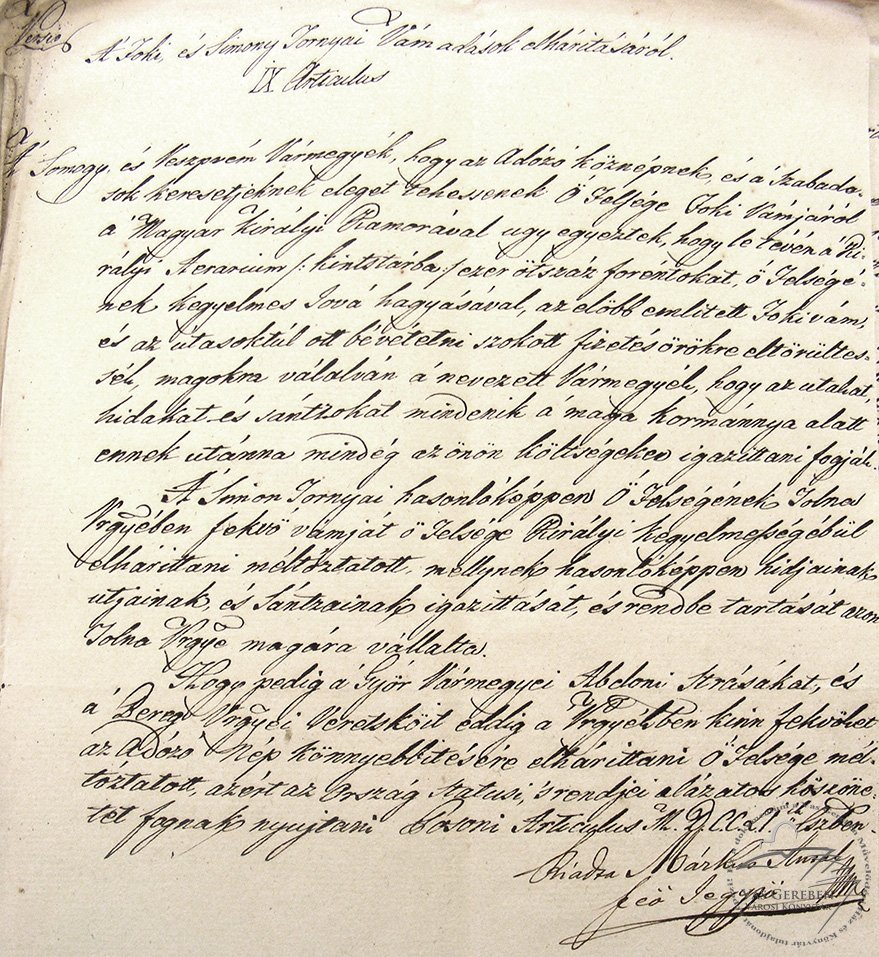 Versio
A Foki, és Simony Tornyai Vám adások elhárításáról.
IX Articulus
A' Somogy, és Veszprém Vármegyék, hogy az Adózó köznépnek, és á Szabado-
sok keresetjeknek eleget tehessenek Ö Felsége Foki Vámjáról
á Magyar Királyi Kamorával ugy egyeztek, hogy le tévén á Ki-
rályi Aerarium /: kintstárba :/ ezer ötszáz forentokat, ö Felségé-
nek kegyelmes Jová hagyásával, az elöbb emlitett Foki vám,
és az utasoktúl ott bévétetni szokott fizetés örökre eltörültes-
sék, magokra válalván á nevezett Vármegyék, hogy az utakat,
hidakat és sántzokat mindenik á maga kormánnya alatt
ennek utánna mindég az önön költségeken igazittani fogják.
A' Simon Tornyai hasonlóképpen Ö Felségének Tolna
Vrgyében fekvö vámját ö Felsége Királyi kegyelmességébül
elhárittani méltóztatott, mellynek hasonlóképpen hidjainak
utjainak, és Sántzainak igazittását, és rendbe tartását azon
Tolna Vrgye magára vállalta.
Hogy pedig á Györ Vármegyei Abdoni Strásákat, és
á Bereg Vrgyei Veretskóit eddig a Vrgyékben kinn fekvöket
az Adózó Nép könnyebbitésére elhárittani Ö Felsége mél-
tóztatott, azért az Ország Statusi, 's rendjei alázatos köszöne-
tet fognak nyujtani Posoni Articulus
Kiadta Márkus
feö Jegyzö
GEREBEN
VÁROSI KÖNYVTÁR